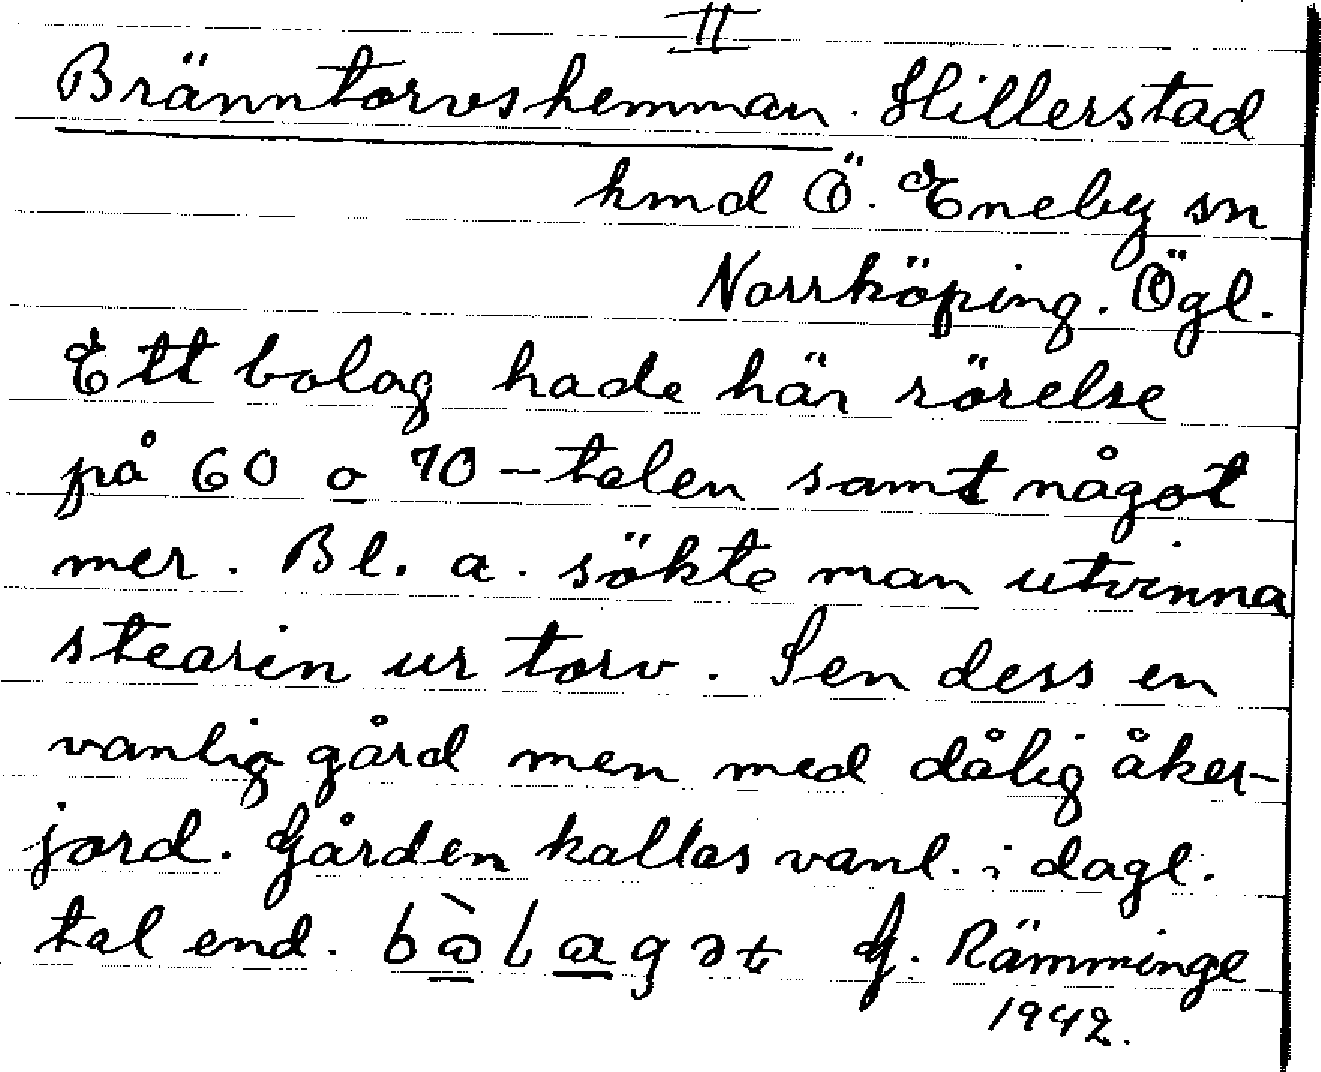 II
Bränntorvshemman. Hillerstad
hmd Ö. Eneby sn
Norrköping. Ögl.
Ett bolag hade här rörelse
på 60 o 70-talen samt något
mer. Bl. a. sökte man utvinna
stearin ur torv. Sen dess en
vanlig gård men med dålig åker-
jord. Gården kallas vanl. i dagl.
tal end. G. Rämminge
1942.